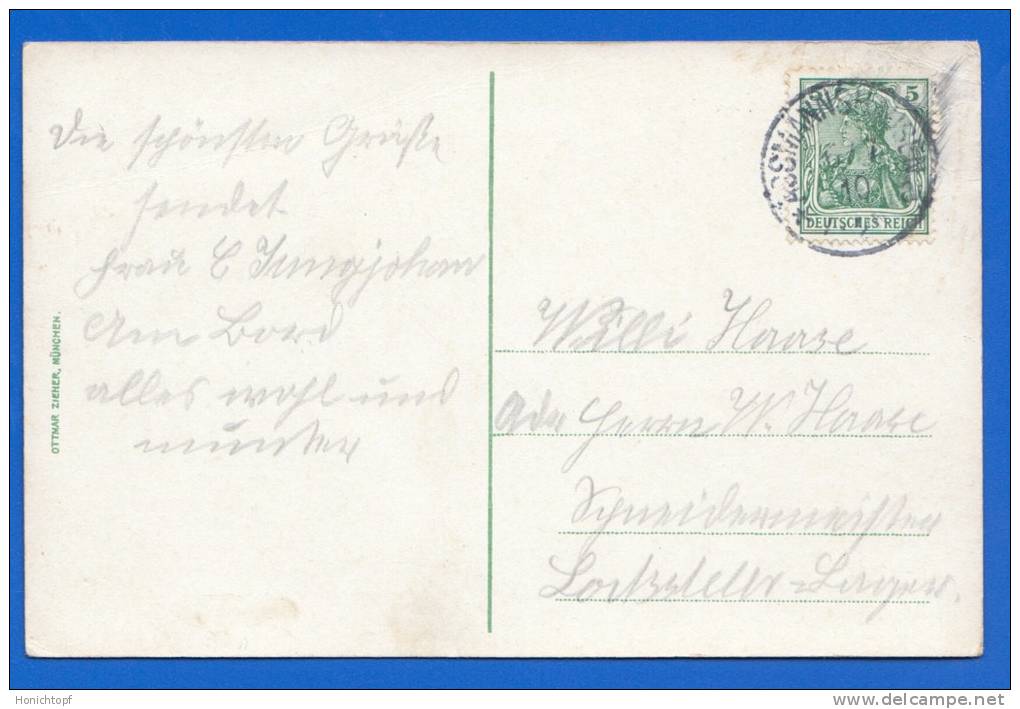 Die schönsten Grüße
sendet
Frau C Jungjohan
Am Bord
alles wohl und
munter
OTTMAR ZIEHER, MÜNCHEN.
5
DEUTSCHES REICH
10
Willi Haase
Adr Herrn W. Haase
Schneidermeister
Honichtopf
www.delcampe.net